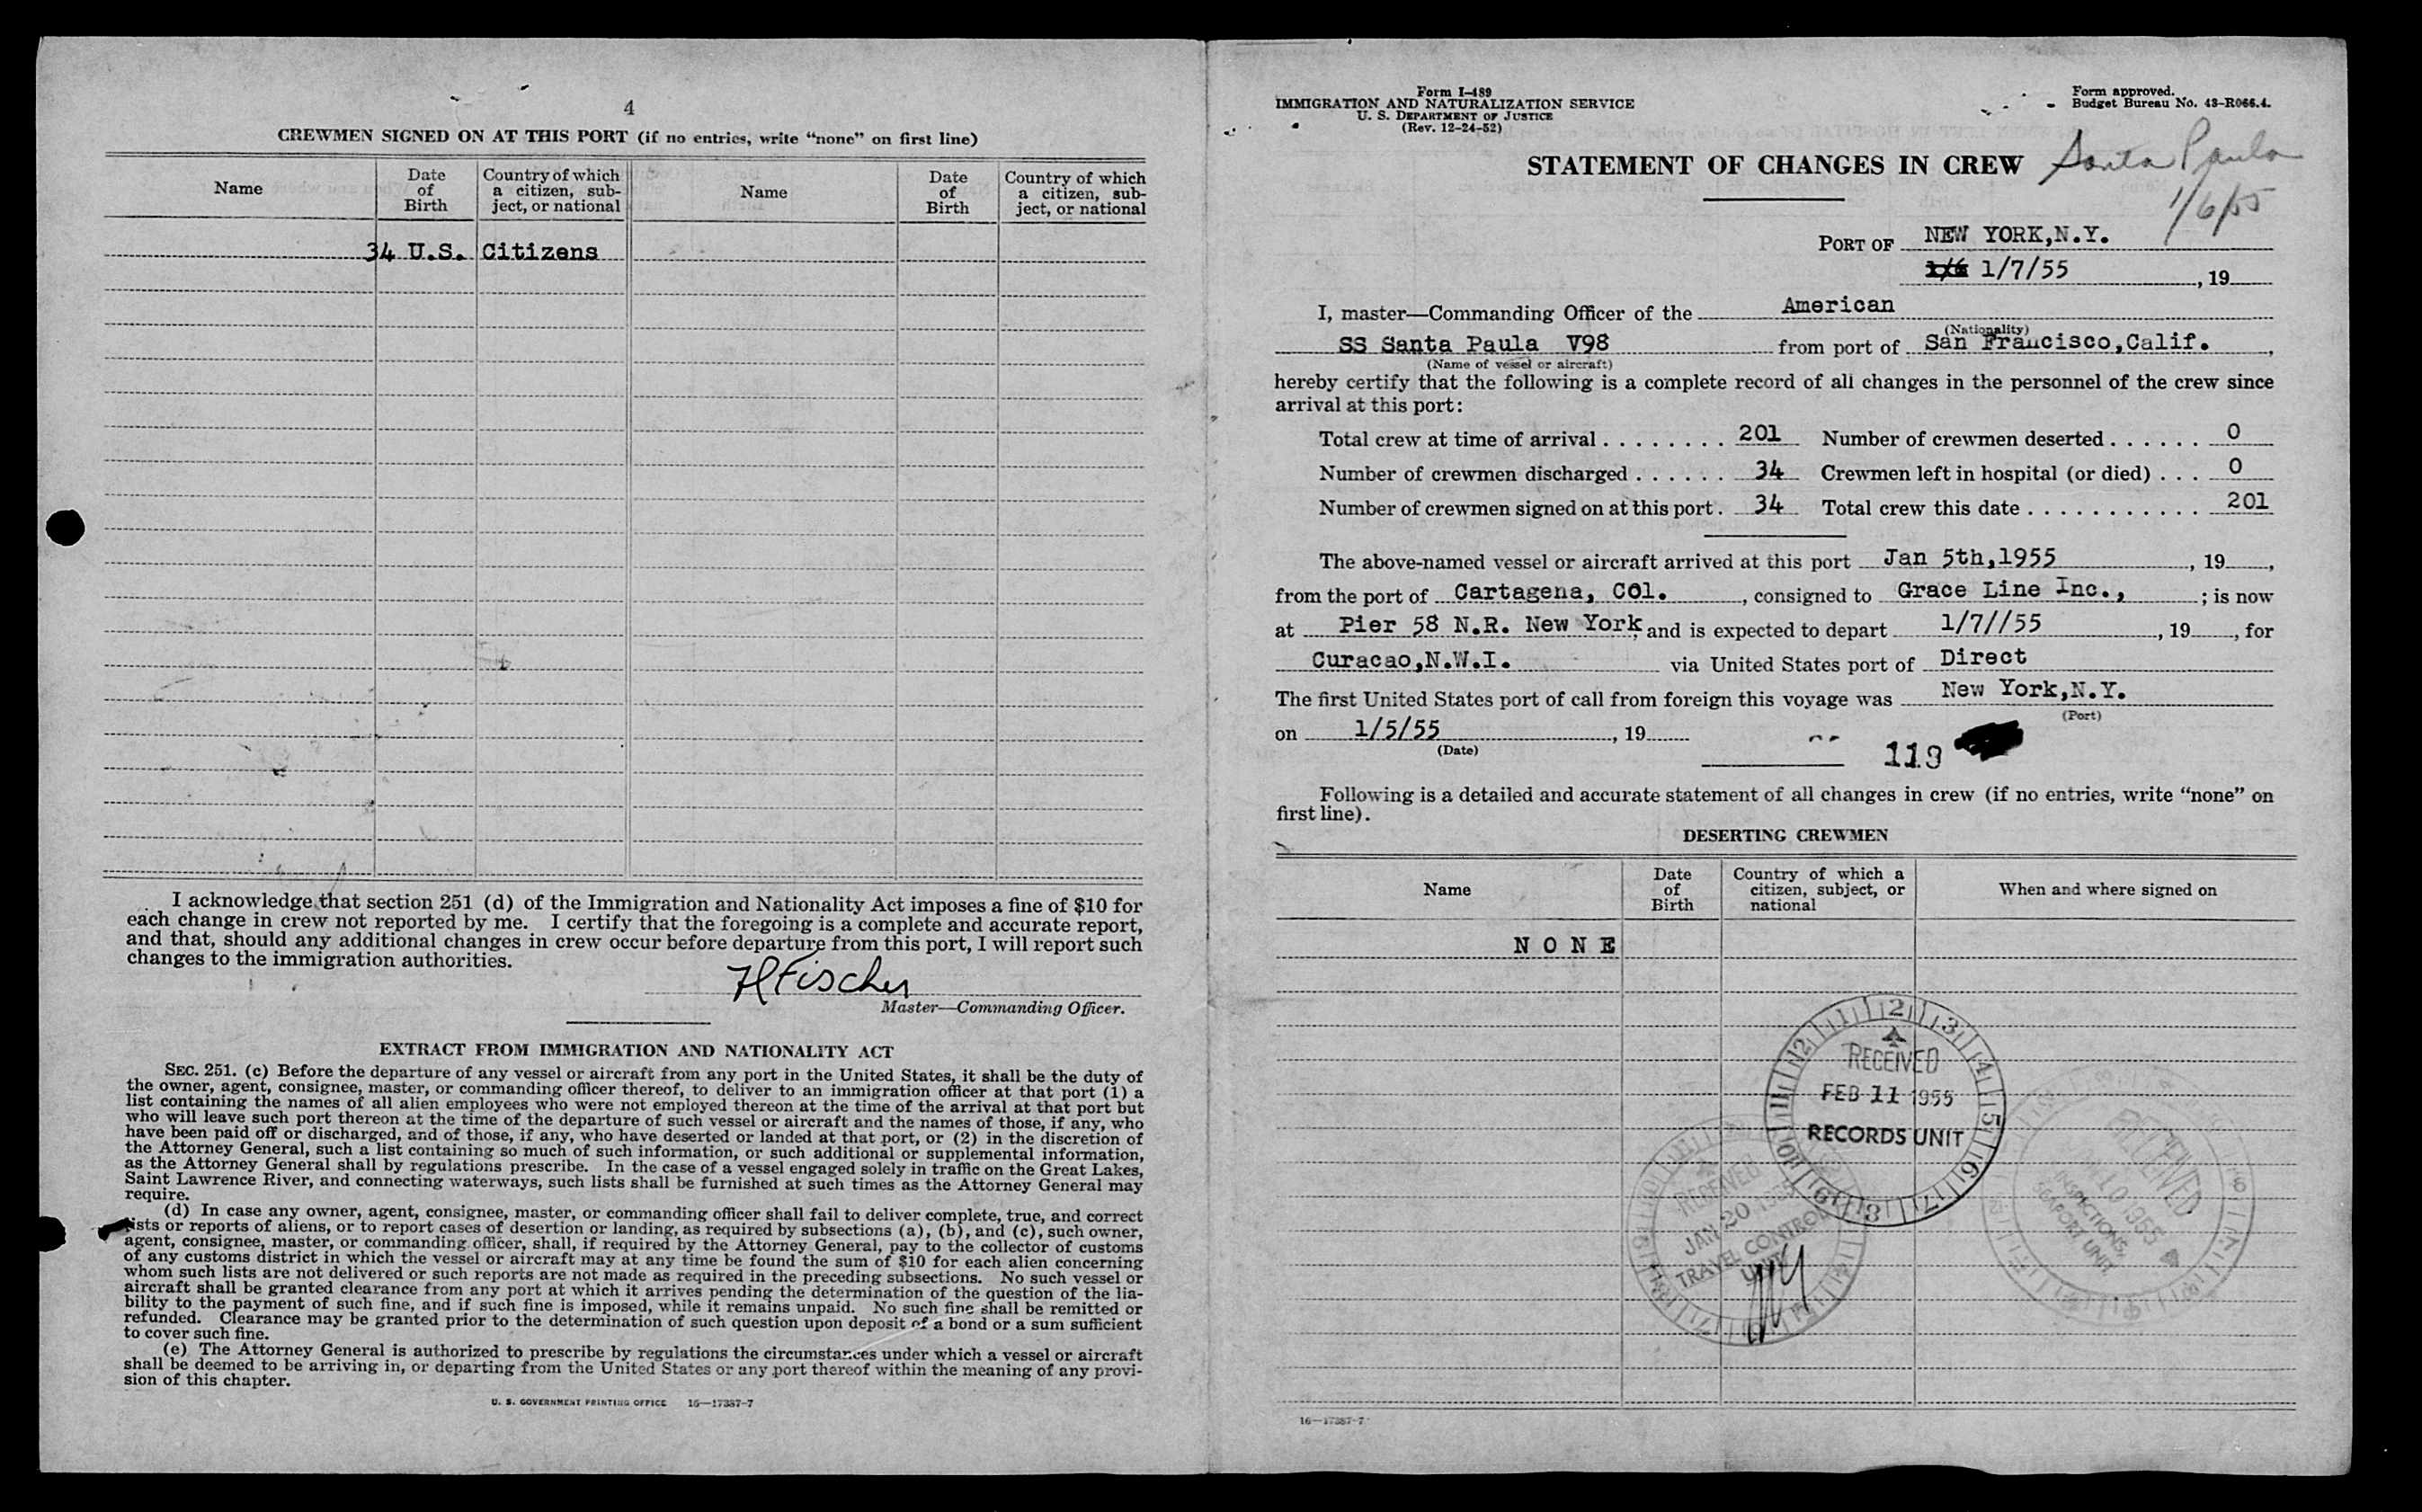 4
CREWMEN SIGNED ON AT THIS PORT (if no entries, write “none” on first line)
Name
Date of Birth
Country of which a citizen, subject, or national
Name
Date of Birth
Country of which a citizen, subject, or national
34 U.S. Citizens
I acknowledge that section 251 (d) of the Immigration and Nationality Act imposes a fine of $10 for
each change in crew not reported by me. I certify that the foregoing is a complete and accurate report,
and that, should any additional changes in crew occur before departure from this port, I will report such
changes to the immigration authorities.
H Fischer
Master—Commanding Officer.
EXTRACT FROM IMMIGRATION AND NATIONALITY ACT
SEC. 251. (c) Before the departure of any vessel or aircraft from any port in the United States, it shall be the duty of
the owner, agent, consignee, master, or commanding officer thereof, to deliver to an immigration officer at that port (1) a
list containing the names of all alien employees who were not employed thereon at the time of the arrival at that port but
who will leave such port thereon at the time of the departure of such vessel or aircraft and the names of those, if any, who
have been paid off or discharged, and of those, if any, who have deserted or landed at that port, or (2) in the discretion of
the Attorney General, such a list containing so much of such information, or such additional or supplemental information,
as the Attorney General shall by regulations prescribe. In the case of a vessel engaged solely in traffic on the Great Lakes,
Saint Lawrence River, and connecting waterways, such lists shall be furnished at such times as the Attorney General may
require.
(d) In case any owner, agent, consignee, master, or commanding officer shall fail to deliver complete, true, and correct
lists or reports of aliens, or to report cases of desertion or landing, as required by subsections (a), (b), and (c), such owner,
agent, consignee, master, or commanding officer, shall, if required by the Attorney General, pay to the collector of customs
of any customs district in which the vessel or aircraft may at any time be found the sum of $10 for each alien concerning
whom such lists are not delivered or such reports are not made as required in the preceding subsections. No such vessel or
aircraft shall be granted clearance from any port at which it arrives pending the determination of the question of the lia-
bility to the payment of such fine, and if such fine is imposed, while it remains unpaid. No such fine shall be remitted or
refunded. Clearance may be granted prior to the determination of such question upon deposit of a bond or a sum sufficient
to cover such fine.
(e) The Attorney General is authorized to prescribe by regulations the circumstances under which a vessel or aircraft
shall be deemed to be arriving in, or departing from the United States or any port thereof within the meaning of any provi-
sion of this chapter.
U. S. GOVERNMENT PRINTING OFFICE 16—17387-7
Form I-489
IMMIGRATION AND NATURALIZATION SERVICE
U. S. DEPARTMENT OF JUSTICE
(Rev. 12-24-52)
Form approved.
Budget Bureau No. 43-R066.4.
STATEMENT OF CHANGES IN CREW
Santa Paula
1/6/55
PORT OF NEW YORK,N.Y.
1/7/55 , 19
I, master—Commanding Officer of the American
(Nationality)
SS Santa Paula V98 from port of San Francisco,Calif. ,
(Name of vessel or aircraft)
hereby certify that the following is a complete record of all changes in the personnel of the crew since
arrival at this port:
Total crew at time of arrival . . . . . . . . 201 Number of crewmen deserted . . . . . . 0
Number of crewmen discharged . . . . . . 34 Crewmen left in hospital (or died) . . . 0
Number of crewmen signed on at this port . 34 Total crew this date . . . . . . . . . . . . 201
The above-named vessel or aircraft arrived at this port Jan 5th,1955 , 19 ,
from the port of Cartagena, COl. , consigned to Grace Line Inc., ; is now
at Pier 58 N.R. New York, and is expected to depart 1/7//55 , 19 , for
Curacao,N.W.I. via United States port of Direct
The first United States port of call from foreign this voyage was New York,N.Y.
(Port)
on 1/5/55 , 19
(Date)
119
Following is a detailed and accurate statement of all changes in crew (if no entries, write “none” on
first line).
DESERTING CREWMEN
Name
Date of Birth
Country of which a citizen, subject, or national
When and where signed on
N O N E
RECEIVED
FEB 11 1955
RECORDS UNIT
RECEIVED
JAN 20 1955
TRAVEL CONTROL
UNIT
RECEIVED
INSPECTIONS,
SEAPORT UNIT
16—17387-7